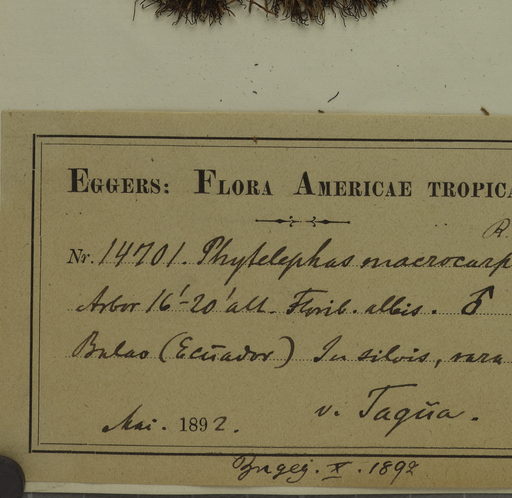 EGGERS: FLORA AMERICAE TROPICA
R
Nr. 14701. Phytelephas macrocarp
Arbor 16'-20' alt. Florib. albis. ♂
Balao (Ecuador) In silvis, rara
v. Tagŭa.
Mai. 1892.
Zugeg. X. 1892